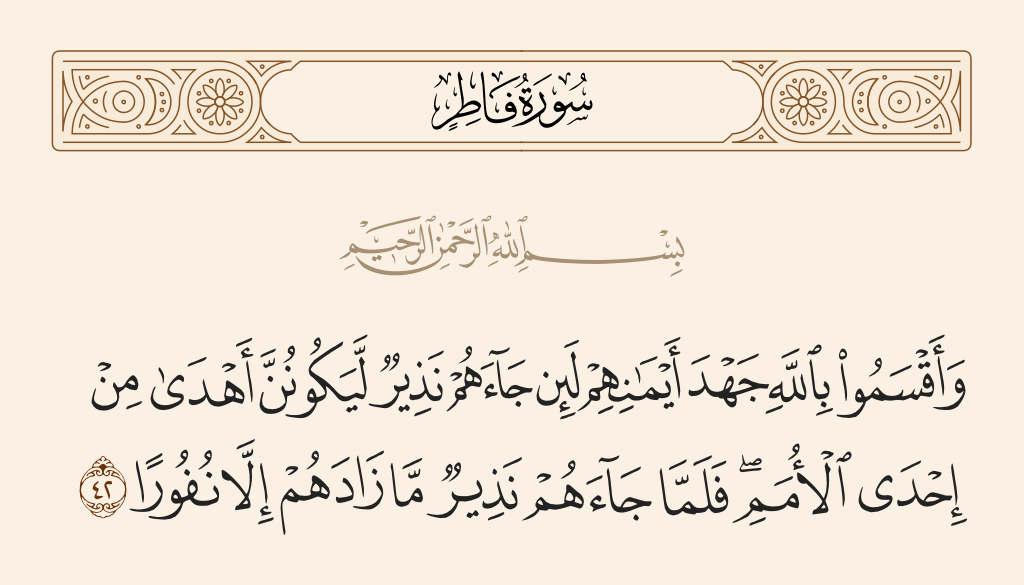 سُورَةُ فَاطِرٍ
بِسْمِ ٱللَّهِ ٱلرَّحْمَٰنِ ٱلرَّحِيمِ
وَأَقْسَمُوا۟ بِٱللَّهِ جَهْدَ أَيْمَـٰنِهِمْ لَئِن جَآءَهُمْ نَذِيرٌ لَّيَكُونُنَّ أَهْدَىٰ مِنْ
إِحْدَى ٱلْأُمَمِ ۖ فَلَمَّا جَآءَهُمْ نَذِيرٌ مَّا زَادَهُمْ إِلَّا نُفُورًا ٤٢